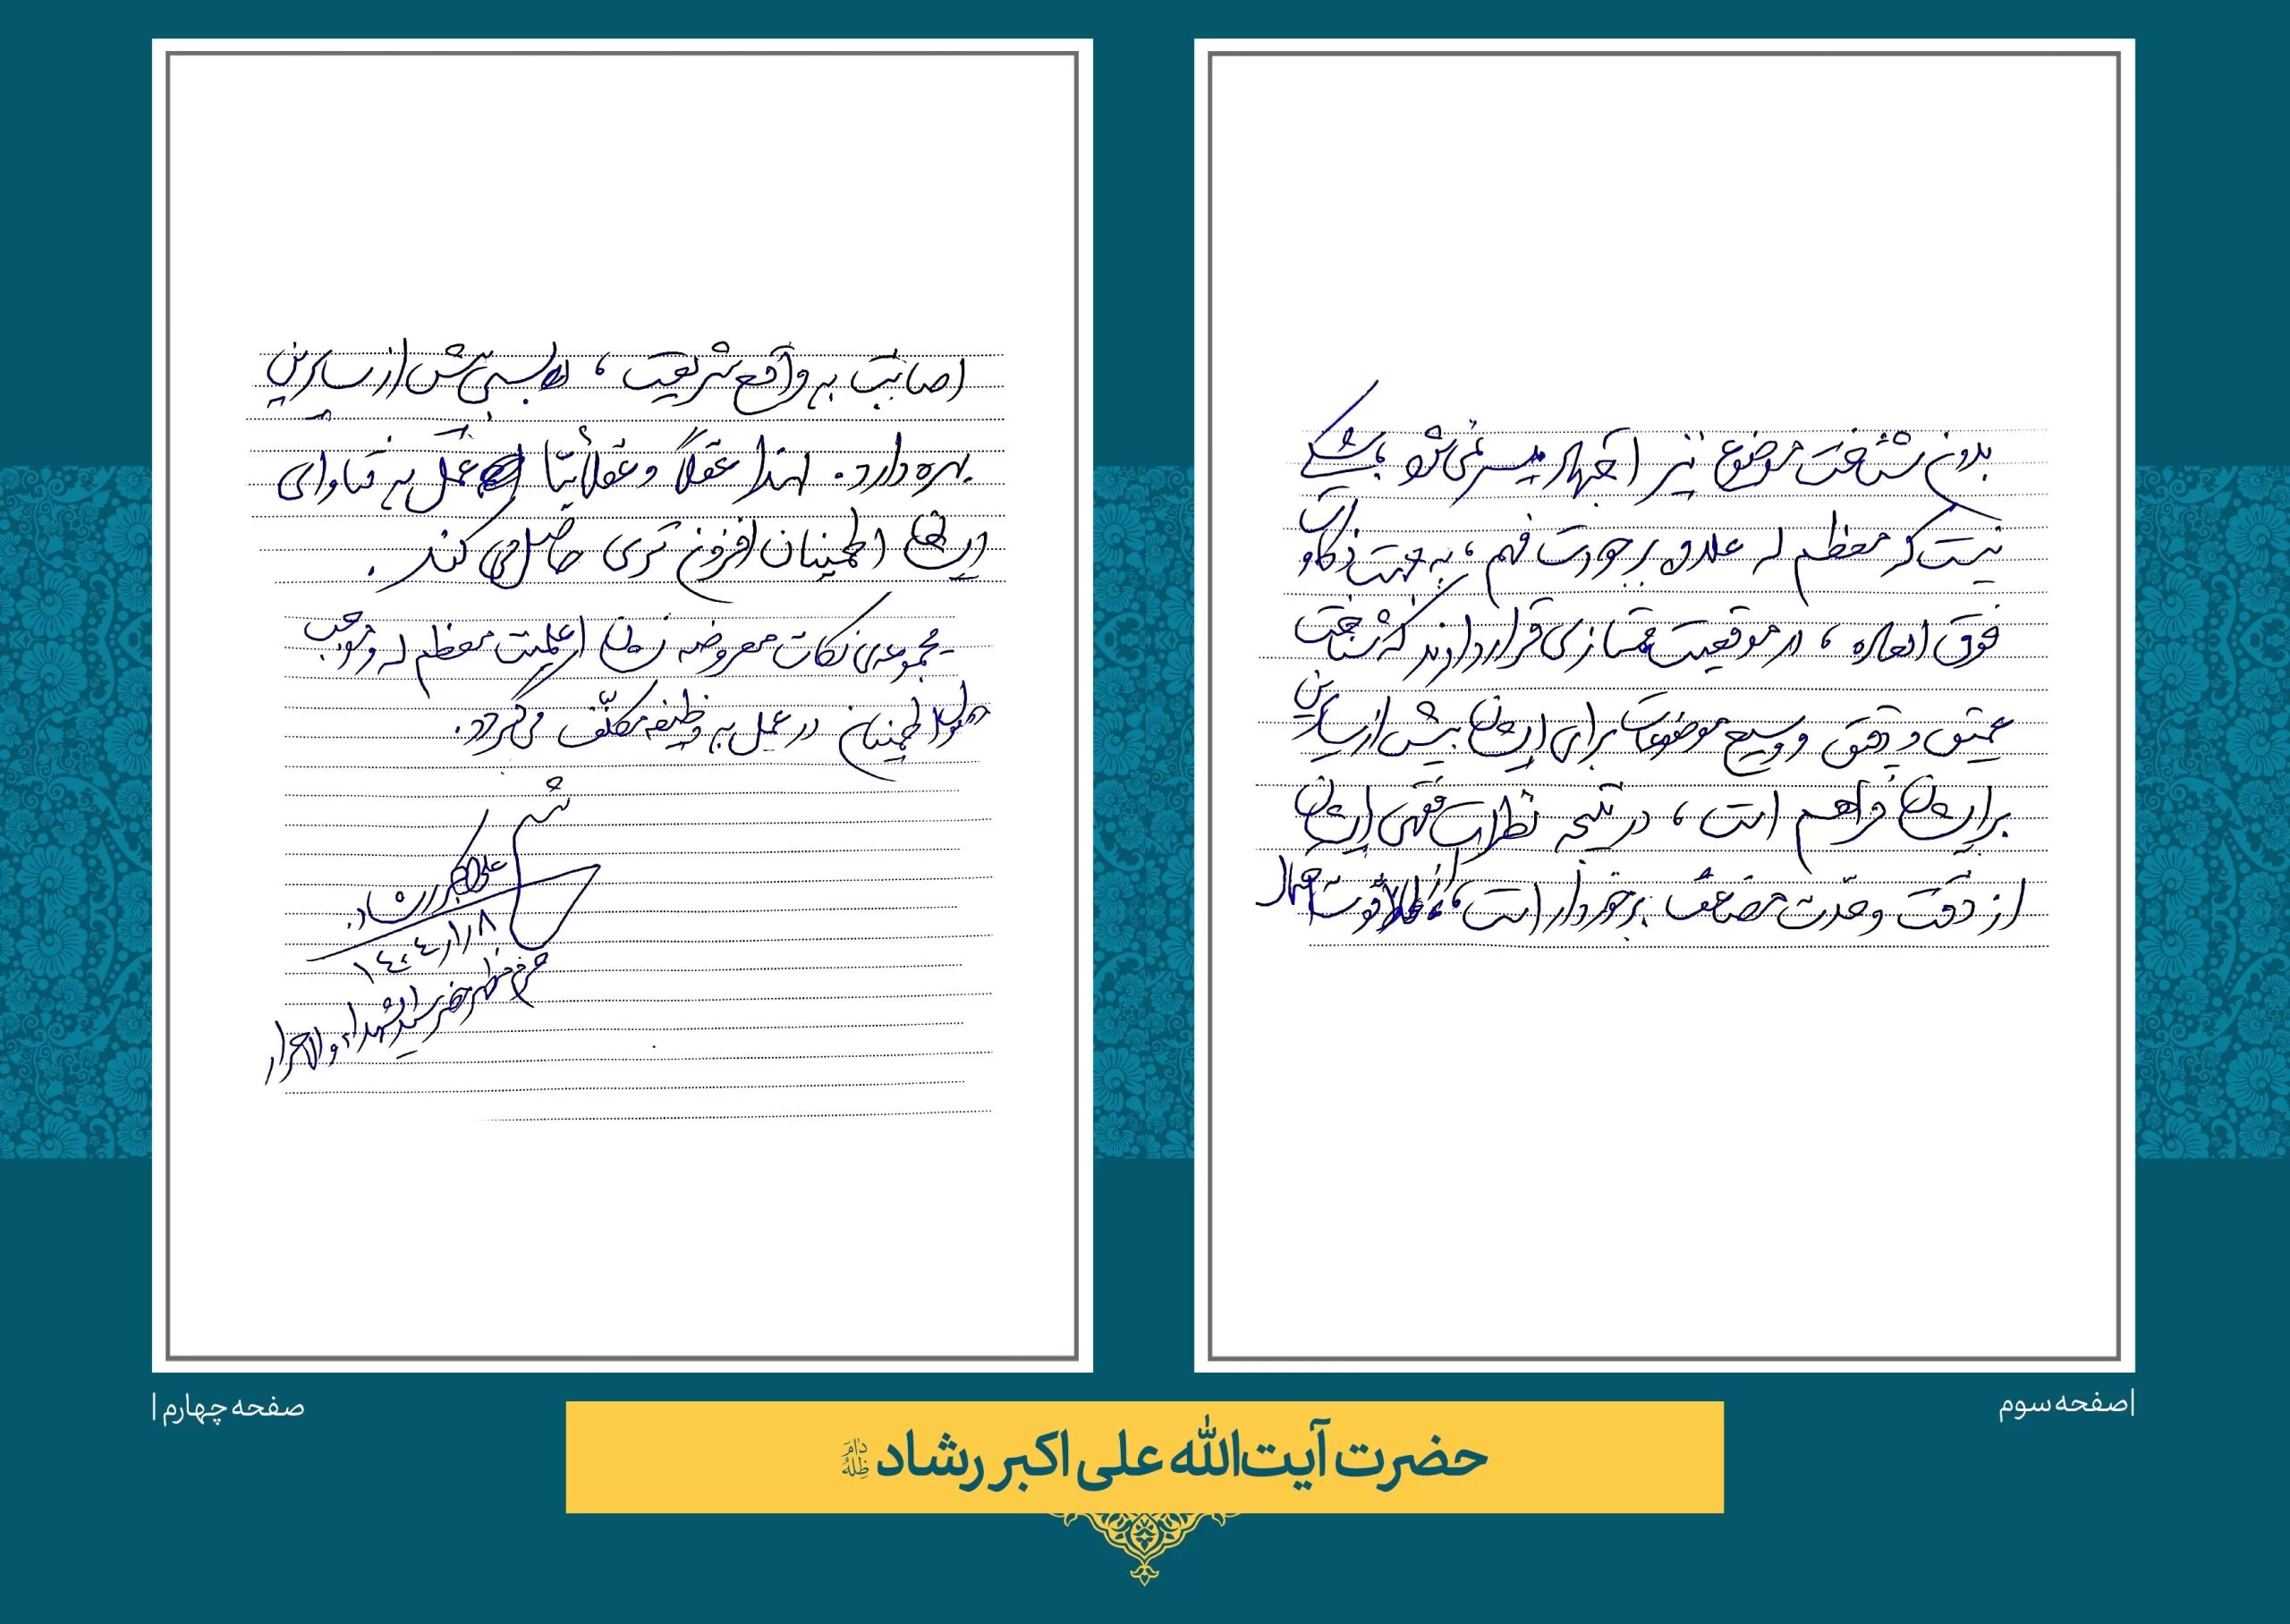 بدون شناخت موضوع نیز اجتهاد میسر نمی‌شود، شکی
نیست که معظم له علاوه بر جودت فهم، به جهت ذکاوت
فوق العاده، در موقعیت ممتازی قرار دارند که شناخت
عمیق و دقیق و وسیع موضوعات برای ایشان بیش از سایرین
برایشان فراهم است، در نتیجه نظرات فقهی ایشان
از دقت و قدرت مضاعف برخوردار است، از قوت
اصابت به واقع شریعت، بیش از سایرین
بهره دارد. لهذا عقلاً و عقلائیّاً عمل به فتاوای
ایشان اطمینان افزون تری حاصل می کند.
مجموعه‌ی نکات معروضه نشان از اعلمیت معظم له و موجب
اطمینان در عمل به وظیفه مکلّف می‌گردد.
علی اکبر رشاد
۱۴۰۴/۱/۸
سیدالشهداء والاحرار
صفحه سوم
صفحه چهارم
حضرت آیت‌الله علی اکبر رشاد دامَ ظِلُّهُ